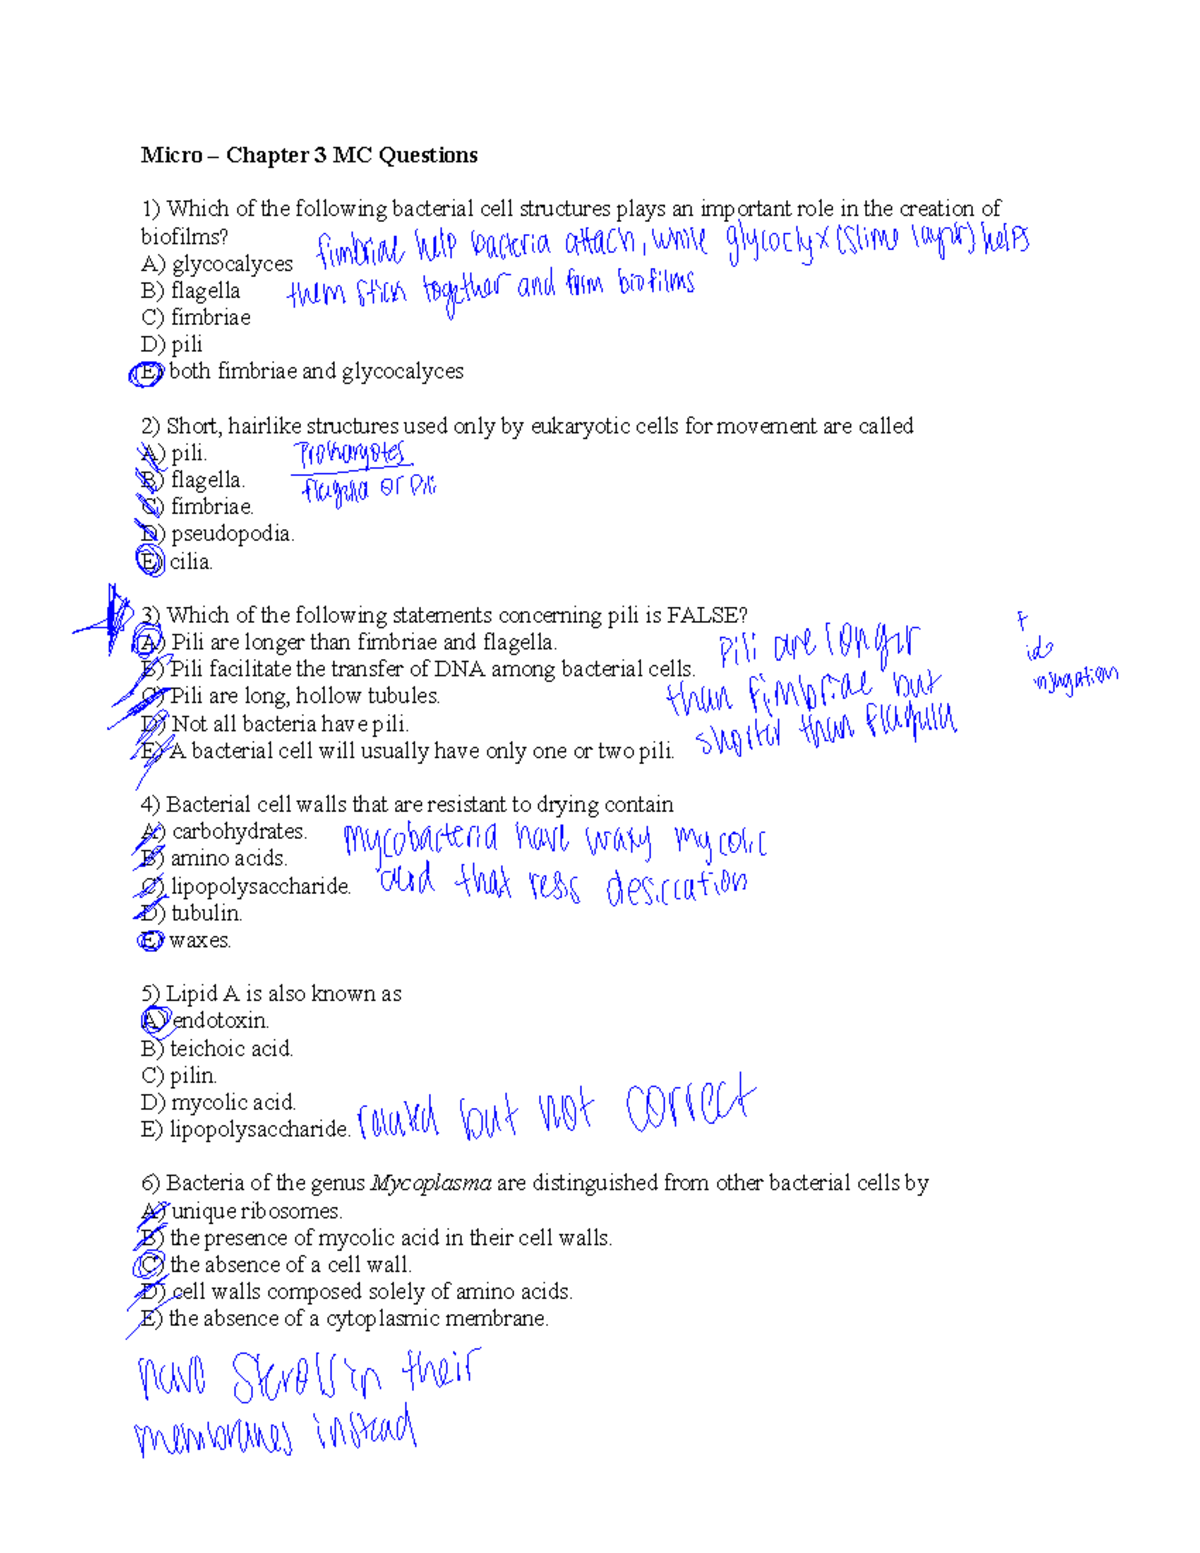 Micro – Chapter 3 MC Questions
1) Which of the following bacterial cell structures plays an important role in the creation of
biofilms?
fimbriae help bacteria attach, while glycoclyx (slime layer) helps
A) glycocalyces
B) flagella
them stick together and form biofilms
C) fimbriae
D) pili
E) both fimbriae and glycocalyces
2) Short, hairlike structures used only by eukaryotic cells for movement are called
A) pili.
Prokaryotes
B) flagella.
flagella or Pili
C) fimbriae.
D) pseudopodia.
E) cilia.
3) Which of the following statements concerning pili is FALSE?
A) Pili are longer than fimbriae and flagella.
Pili are longer
B) Pili facilitate the transfer of DNA among bacterial cells.
C) Pili are long, hollow tubules.
than fimbriae but
njugation
D) Not all bacteria have pili.
shorter than flagella
E) A bacterial cell will usually have only one or two pili.
4) Bacterial cell walls that are resistant to drying contain
A) carbohydrates.
mycobacteria have waxy mycolic
B) amino acids.
C) lipopolysaccharide.
acid that desiccation
D) tubulin.
E) waxes.
5) Lipid A is also known as
A) endotoxin.
B) teichoic acid.
C) pilin.
D) mycolic acid.
E) lipopolysaccharide.
related but not correct
6) Bacteria of the genus Mycoplasma are distinguished from other bacterial cells by
A) unique ribosomes.
B) the presence of mycolic acid in their cell walls.
C) the absence of a cell wall.
D) cell walls composed solely of amino acids.
E) the absence of a cytoplasmic membrane.
have in their
membranes instead